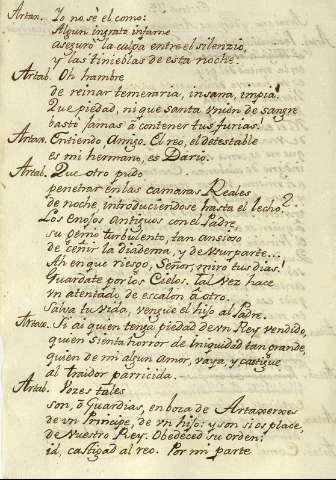 Artax. Yo no sè el como:
Algun ingrato infame
aseguró la culpa entre el silenzio,
y las tinieblas de esta noche.
Artab. Oh hambre
de reinar temeraria, insana, impia!
Que piedad, ni que santa vnión de sangre
bastó jamas à contener tus furias.
Artax. Entiendo Amigo. El reo, el detestable
es mi hermano, es Dario.
Artab. Que otro pudo
penetrar en las camaras Reales
de noche, introduciendose hasta el lecho?
Los enojos Antiguos con el Padre,
su genio turbulento, tan ansioso
de ceñir la diadema, y de vsurparte...
Ah en que riesgo, Señor, miro tus dias!
Guardate por los Cielos. Tal vez hace
vn atentado, de escalon à otro.
Salva tu vida, vengue el hijo al Padre.
Artax. Si ai quien tenga piedad de vn Rey vendido,
quien sienta horror de iniquidad tan grande,
quien de mi algun amor, vaya, y castigue
al traidor parricida.
Artab. Vozes tales
son, ò Guardias, en boza de Artaxerxes
de vn Principe, de vn hijo: y son si os place,
de Vuestro Rey. Obedeced su orden:
id, castigad al reo. Por mi parte